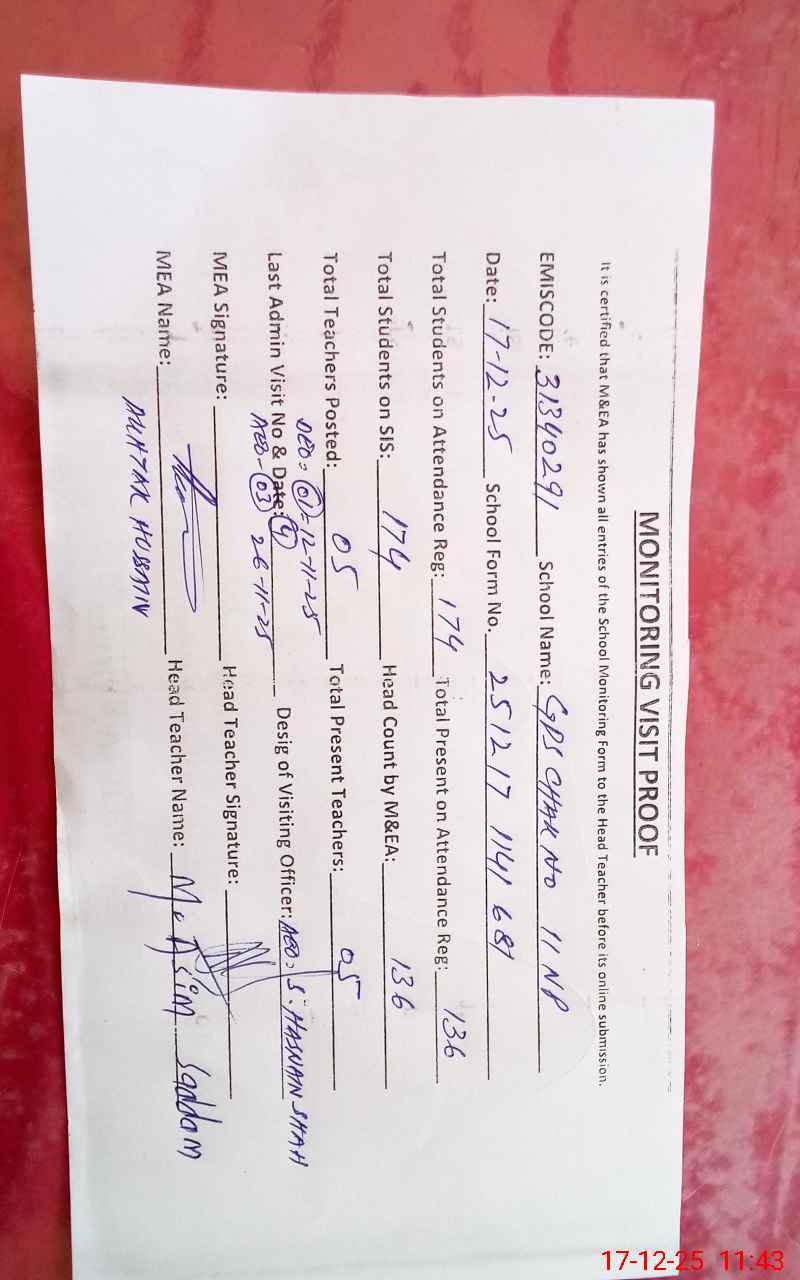 MONITORING VISIT PROOF
It is certified that M&EA has shown all entries of the School Monitoring Form to the Head Teacher before its online submission.
EMISCODE: 31340291 School Name: GPS CHAK NO 11 NP
Date: 17-12-25 School Form No. 251217 1141 681
Total Students on Attendance Reg: 174 Total Present on Attendance Reg: 136
Total Students on SIS: 174 Head Count by M&EA: 136
Total Teachers Posted: 05 Total Present Teachers: 05
DEO = 01 = 12-11-25
Last Admin Visit No & Date: 4 Desig of Visiting Officer: AEO = S. HASNAIN SHAH
AEO - 03 26-11-25
MEA Signature: Head Teacher Signature:
MEA Name: Head Teacher Name: M. Asim Saddam
HUSSAIN
17-12-25 11:43